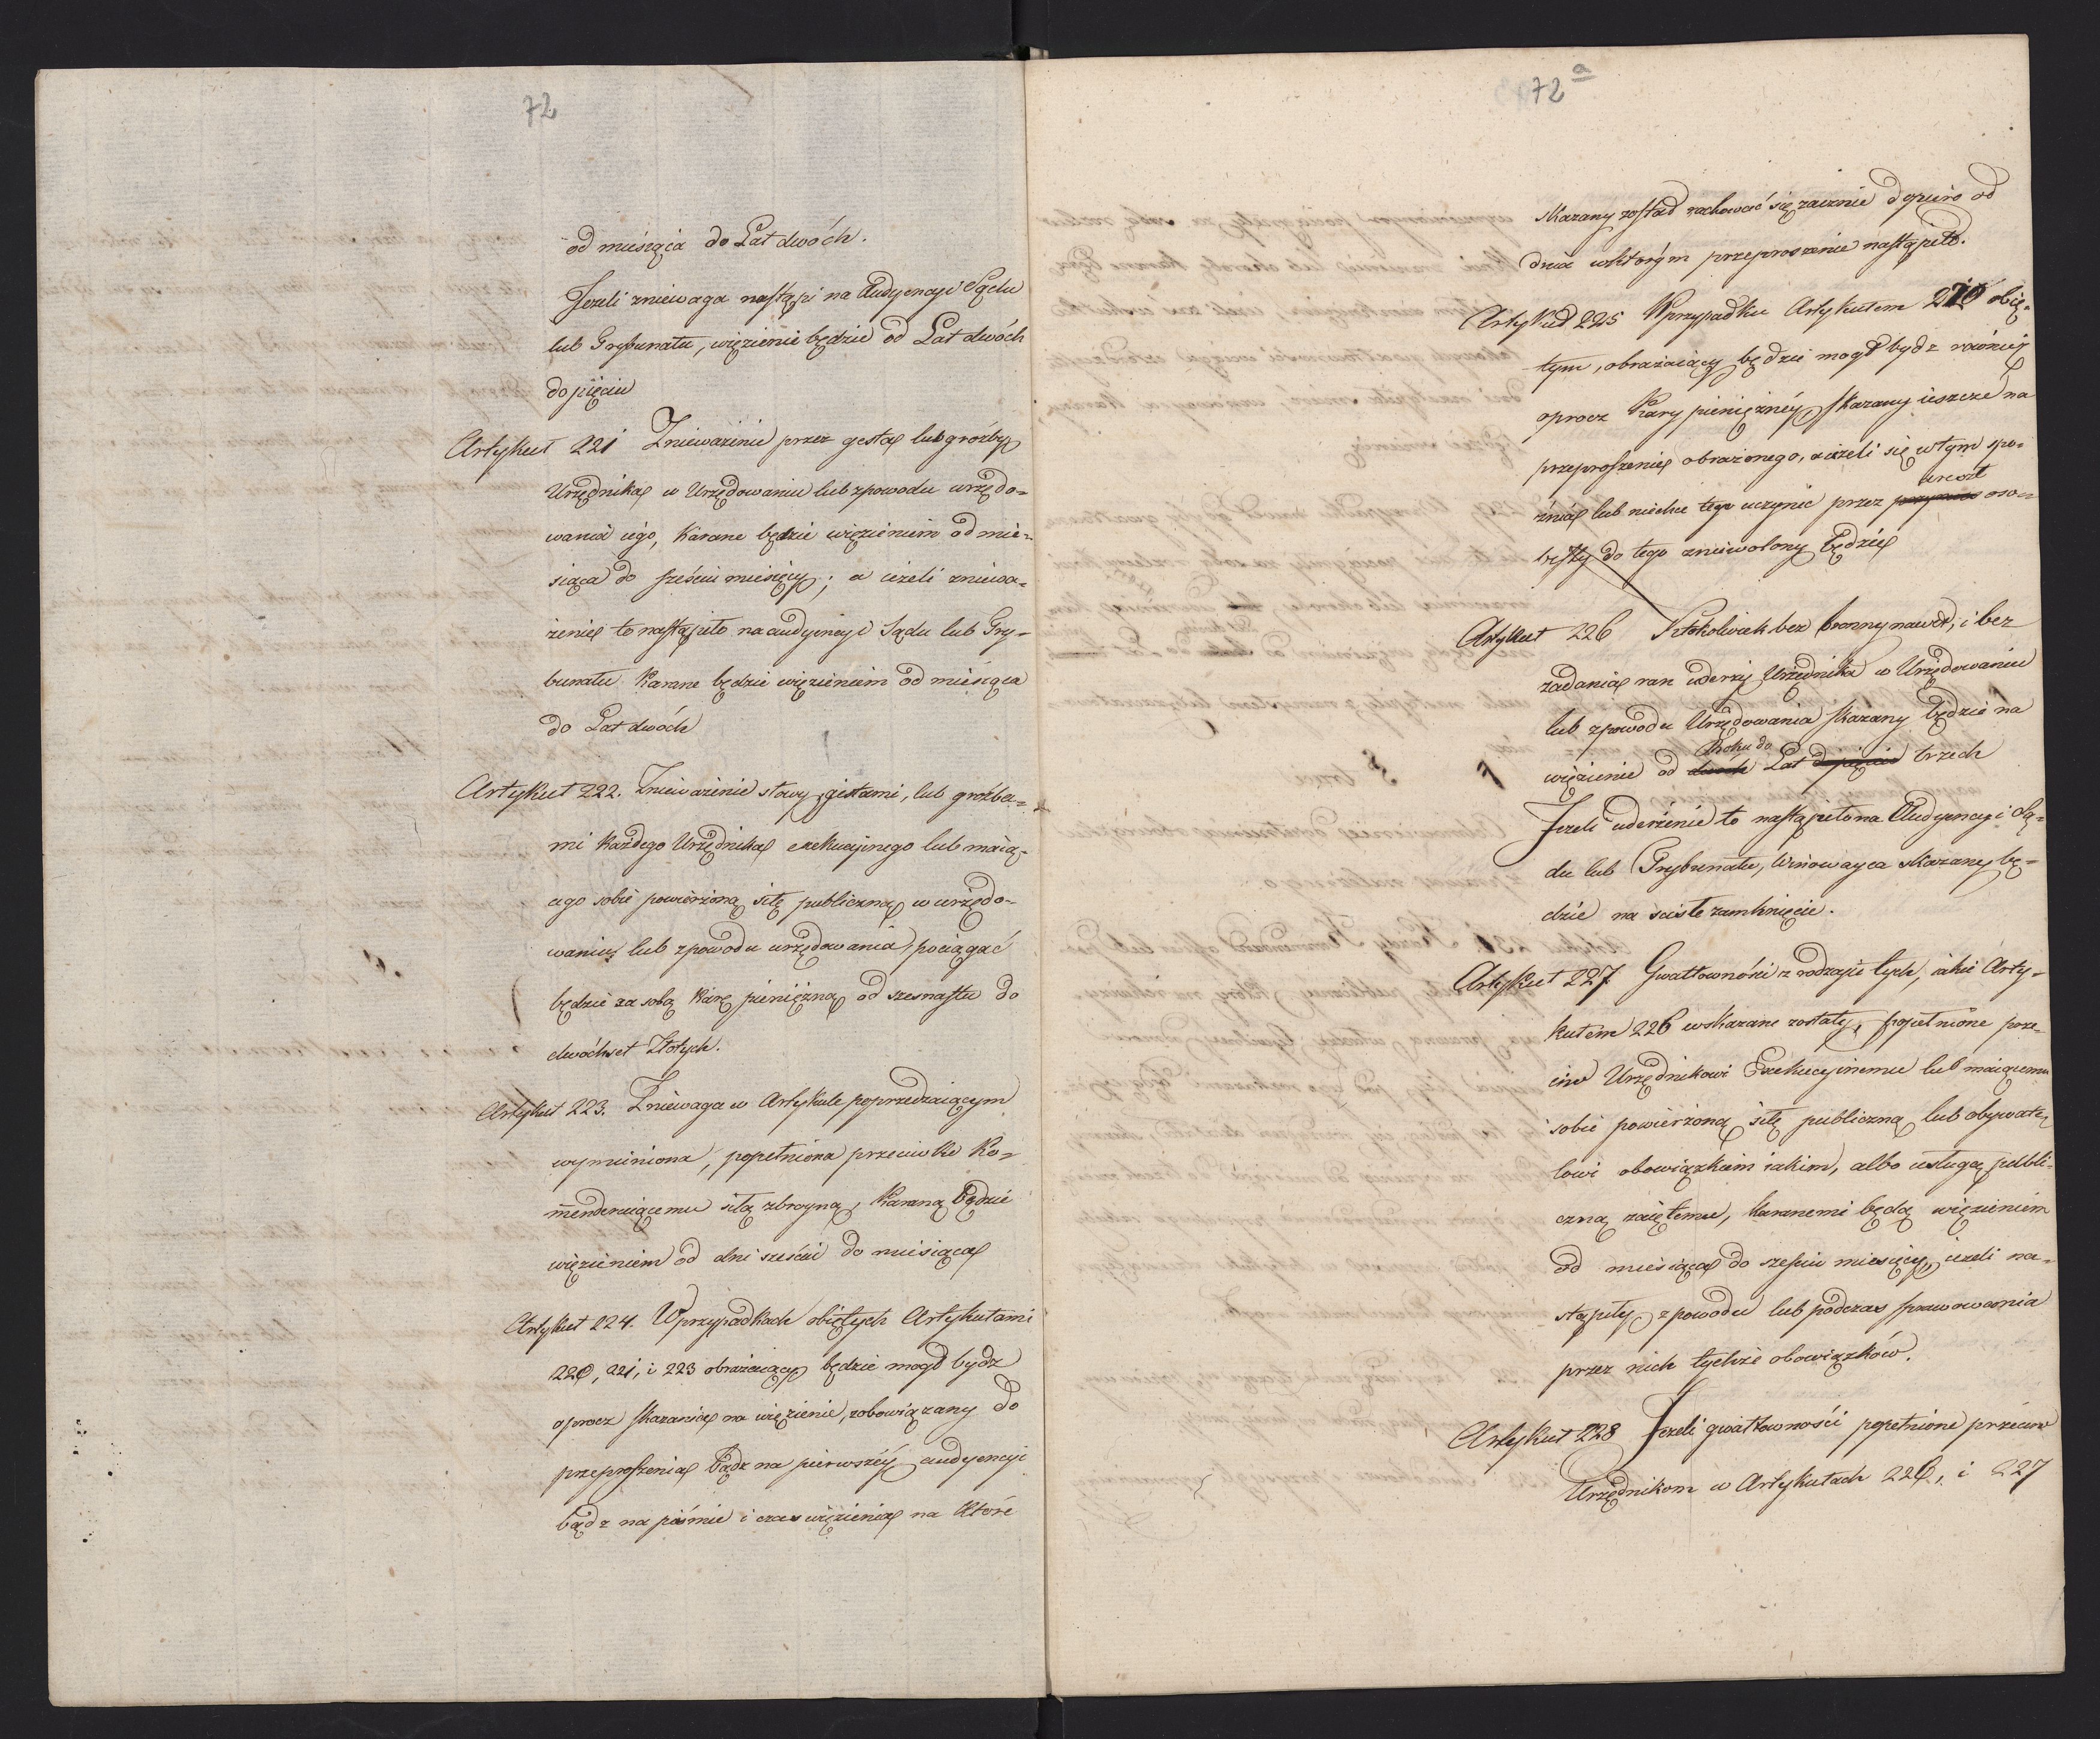 72
od miesiąca do Lat dwóch.
Jeżeli zniewaga nastąpi na Audyencyi Sądu
lub Trybunału, więzienie będzie od Lat dwóch
do pięciu
Artykuł 221 Znieważenie przez gesta lub groźby
Urzędnika w Urzędowaniu lub z powodu urzędo=
wania iego, karane będzie więzieniem od mie=
siąca do sześciu miesięcy; a ieżeli zniewa=
żenie to nastąpiło na audyencyi Sądu lub Try=
bunału karane będzie więzieniem od miesiąca
do Lat dwóch
Artykuł 222. Znieważenie słowy, gestami, lub groźba=
mi każdego Urzędnika exekucyjnego lub maią=
cego sobie powierzoną siłę publiczną w urzędo=
waniu lub z powodu urzędowania pociągać
będzie za sobą karę pieniężną od szesnastu do
dwóchset Złotych.
Artykuł 223. Zniewaga w Artykule poprzedzaiącym
wymieniona, popełniona przeciwko Ko=
menderuiącemu siłą zbroyną, karaną będzie
więzieniem od dni sześciu do miesiąca
Artykuł 224. W przypadkach obiętych Artykułami
220, 221, i 223 obrażaiący będzie mógł bydź
oprocz skazania na więzienie, zobowiązany do
przeproszenia bądz na pierwszéy audyencyi
bądz na piśmie i czas więzienia na które
72 a
skazany został rachować się zacznie dopiero od
dnia w którym przeproszenie nastąpiło.
Artykuł 225 W przypadku Artykułem obię=
tym, obrażaiący będzie mógł bydz również
oprocz Kary pieniężnéy, skazany ieszcze na
przeproszenie obrażonego, a ieżeli się w tym spo=
areszt
źnia lub niechce tego uczynić przez oso=
bisty do tego zniewolony będzie
Artykuł 226 Ktokolwiek bez bronny nawet, i bez
zadania ran uderzy Urzędnika w Urzędowaniu
lub z powodu Urzędowania skazany będzie na
Roku do
więzienie od dwóch Lat do pięciu trzech
Jeżeli uderzenie to nastąpiło na Audyencyi Są=
du lub Trybunału, Winowayca skazany bę=
dzie na ściste zamknięcie.
Artykuł 227 Gwałtowności z rodzaju tych, iakie Arty=
kułem 226 wskazane zostały, popełnione prze=
ciw Urzędnikowi Exekucyinemu lub maiącemu
sobie powierzoną siłę publiczną lub obywate=
lowi obowiązkiem iakim, albo usługą publi=
czną zaiętemu, karanemi będą więzieniem
od miesiąca do sześciu miesięcy, ieżeli na=
stąpiły z powodu lub podczas sprawowania
przez nich tychże obowiązków.
Artykuł 228 Jeżeli gwałtowności popełnione przeciw
Urzędnikom w Artykułach 226, i 227